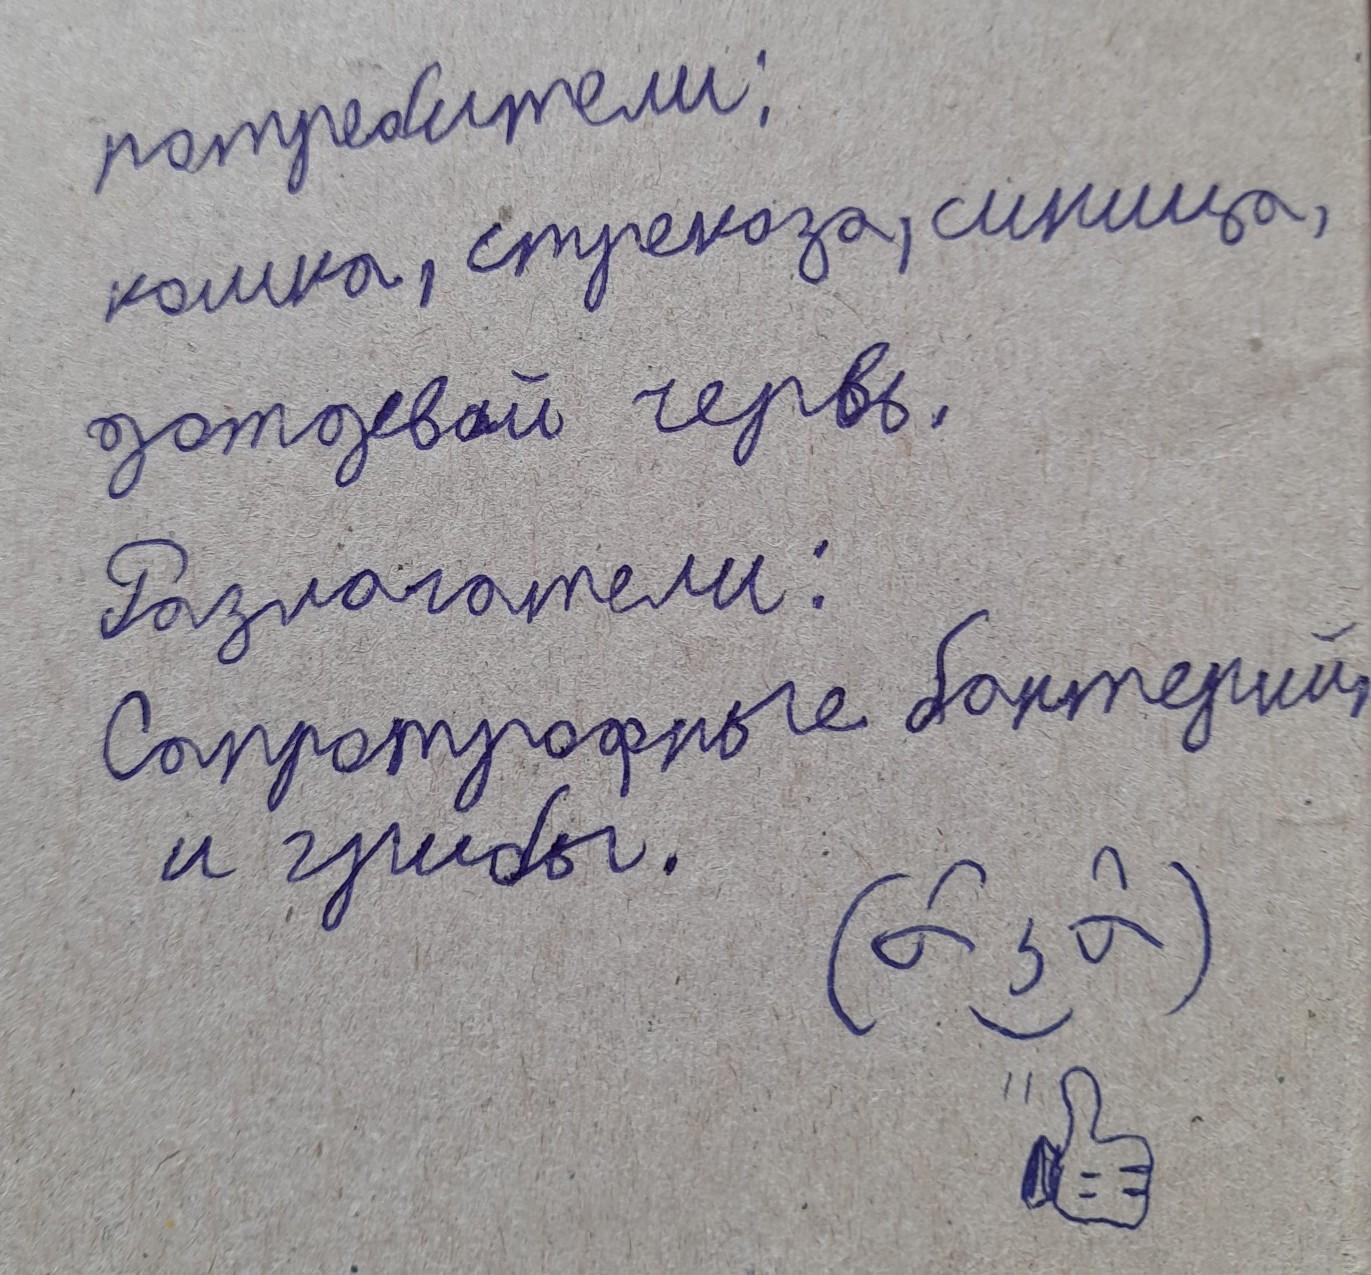 потребители:
кошка, стрекоза, синица,
дотдевой червь.
Разлагатели:
Сапротрофные бактерий,
и грибы.